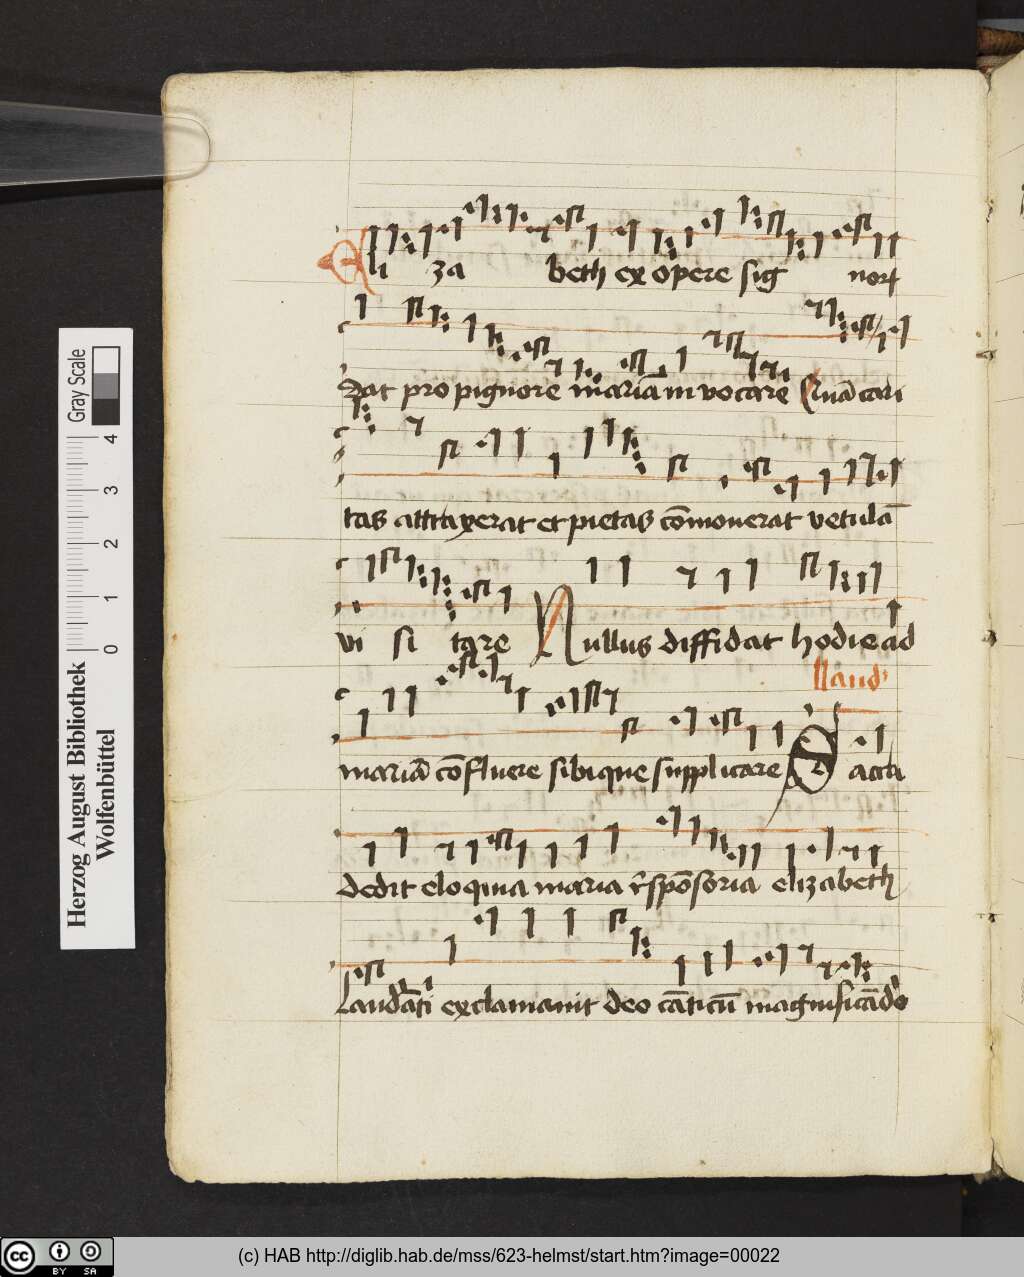 Eli za beth ex opere sig nort
dat pro pignore mariā in vocare Quā cari
tas attraxerat et pietas cōmouerat vetulā
vi si tare Nullus diffidat hodie ad
llaud'
mariā cōfluere sibique supplicare Et acta
dedit eloquia maria r̄spōsoria elizabeth
Laudāti exclamauit deo cāticū magnificādo
Herzog August Bibliothek
Wolfenbüttel
Gray Scale
0 1 2 3 4
cc BY SA
(c) HAB http://diglib.hab.de/mss/623-helmst/start.htm?image=00022